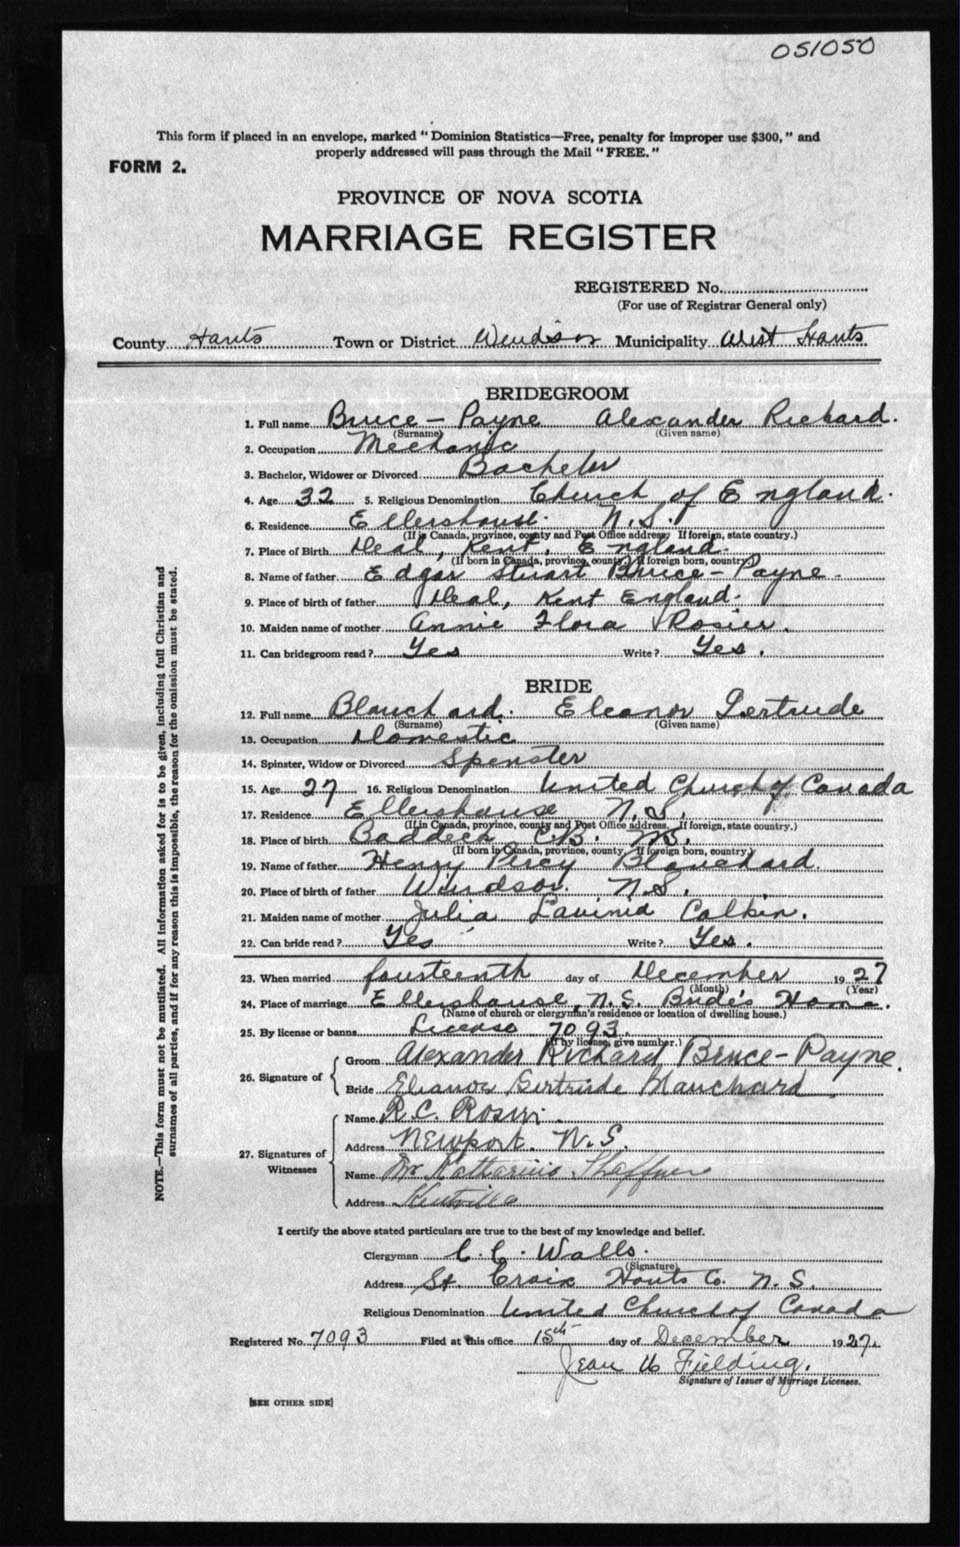 051050
This form if placed in an envelope, marked "Dominion Statistics—Free, penalty for improper use $300," and
properly addressed will pass through the Mail "FREE."
FORM 2.
PROVINCE OF NOVA SCOTIA
MARRIAGE REGISTER
REGISTERED No.
(For use of Registrar General only)
County Hants Town or District Windsor Municipality West Hants
BRIDEGROOM
1. Full name Bruce-Payne Alexander Richard.
(Surname) (Given name)
2. Occupation Mechanic
3. Bachelor, Widower or Divorced Bachelor
4. Age 32 5. Religious Denomination Church of England.
6. Residence Ellershouse. N.S.
(If in Canada, province, county and Post Office address; If foreign, state country.)
7. Place of Birth Deal, Kent, England.
(If born in Canada, province, county, If foreign born, country)
8. Name of father Edgar Stuart Bruce-Payne.
9. Place of birth of father Deal, Kent England.
10. Maiden name of mother Annie Flora Rosier.
11. Can bridegroom read? Yes Write? Yes.
BRIDE
12. Full name Blanchard. Eleanor Gertrude
(Surname) (Given name)
13. Occupation Domestic
14. Spinster, Widow or Divorced Spinster
15. Age 27 16. Religious Denomination United Church of Canada
17. Residence Ellershouse N.S.
(If in Canada, province, county and Post Office address. If foreign, state country.)
18. Place of birth Baddeck C.B. N.S.
(If born in Canada, province, county. If foreign born, country)
19. Name of father Henry Percy Blanchard.
20. Place of birth of father Windsor. N.S.
21. Maiden name of mother Julia Lavinia Calkin.
22. Can bride read? Yes Write? Yes.
23. When married fourteenth day of December 1927
(Month) (Year)
24. Place of marriage Ellershouse, N.S. Bride's Home.
(Name of church or clergyman's residence or location of dwelling house.)
25. By license or banns License 7093.
(If by license, give number.)
26. Signature of
Groom Alexander Richard Bruce-Payne.
Bride Eleanor Gertrude Blanchard
27. Signatures of Witnesses
Name R.C.
Address Newport. N.S.
Name Katharine Shaffner
Address Kentville
I certify the above stated particulars are true to the best of my knowledge and belief.
Clergyman C. C. Walls.
(Signature)
Address St Croix Hants Co. N.S.
Religious Denomination United Church of Canada
Registered No. 7093 Filed at this office 15th day of December 1927.
Jean Fielding.
Signature of Issuer of Marriage Licenses.
[SEE OTHER SIDE]
NOTE.—This form must not be mutilated. All information asked for is to be given, including full Christian and
surnames of all parties, and if for any reason this is impossible, the reason for the omission must be stated.